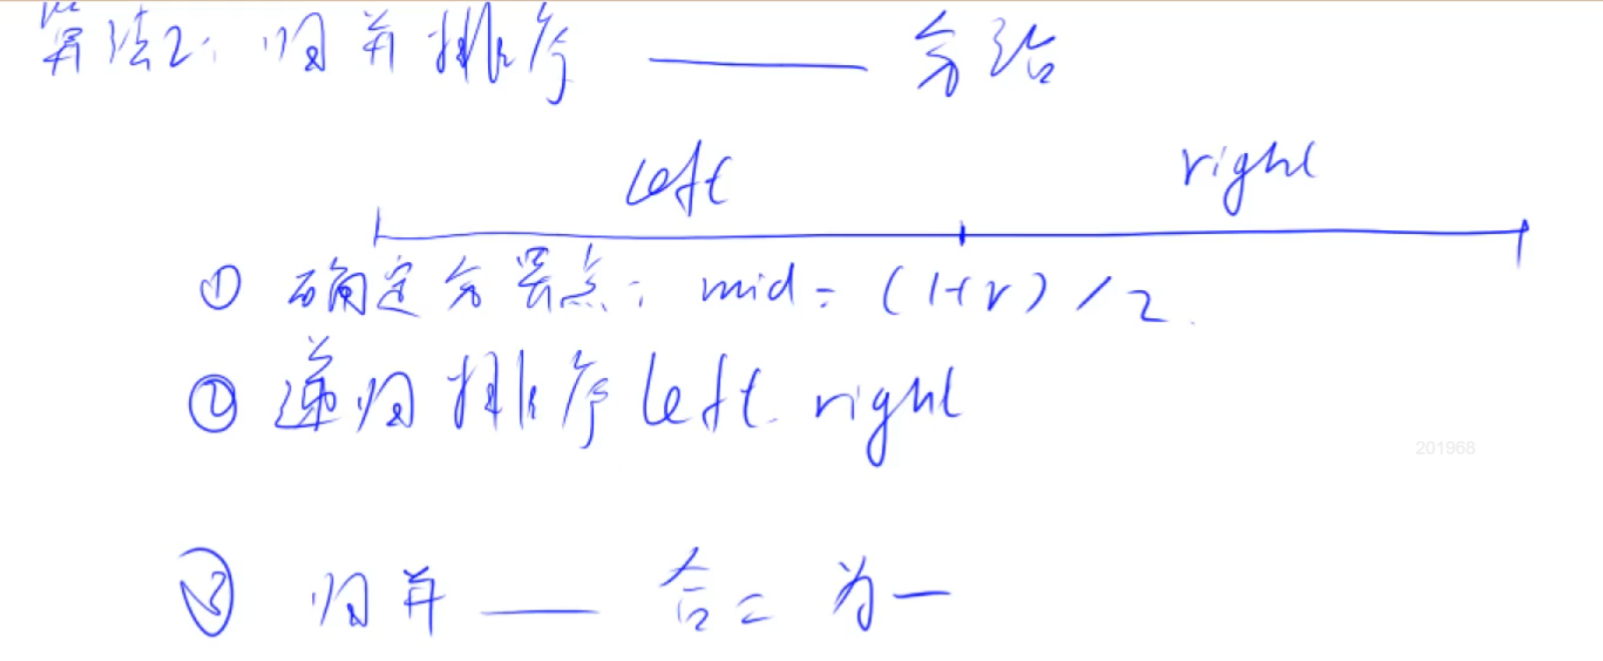 算法2: 归并排序 —— 分治
left right
① 确定分界点: mid = (l+r) / 2.
② 递归排序 left. right
201968
③ 归并 —— 合二为一